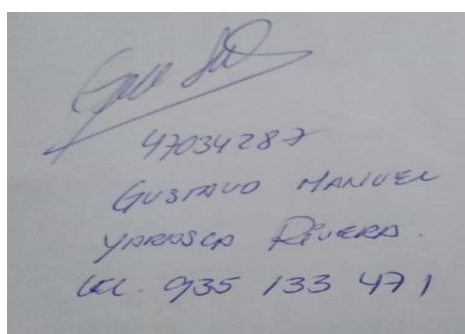 47034287
GUSTAVO MANUEL
YAROSCA RIVERA.
Cel. 935 133 471